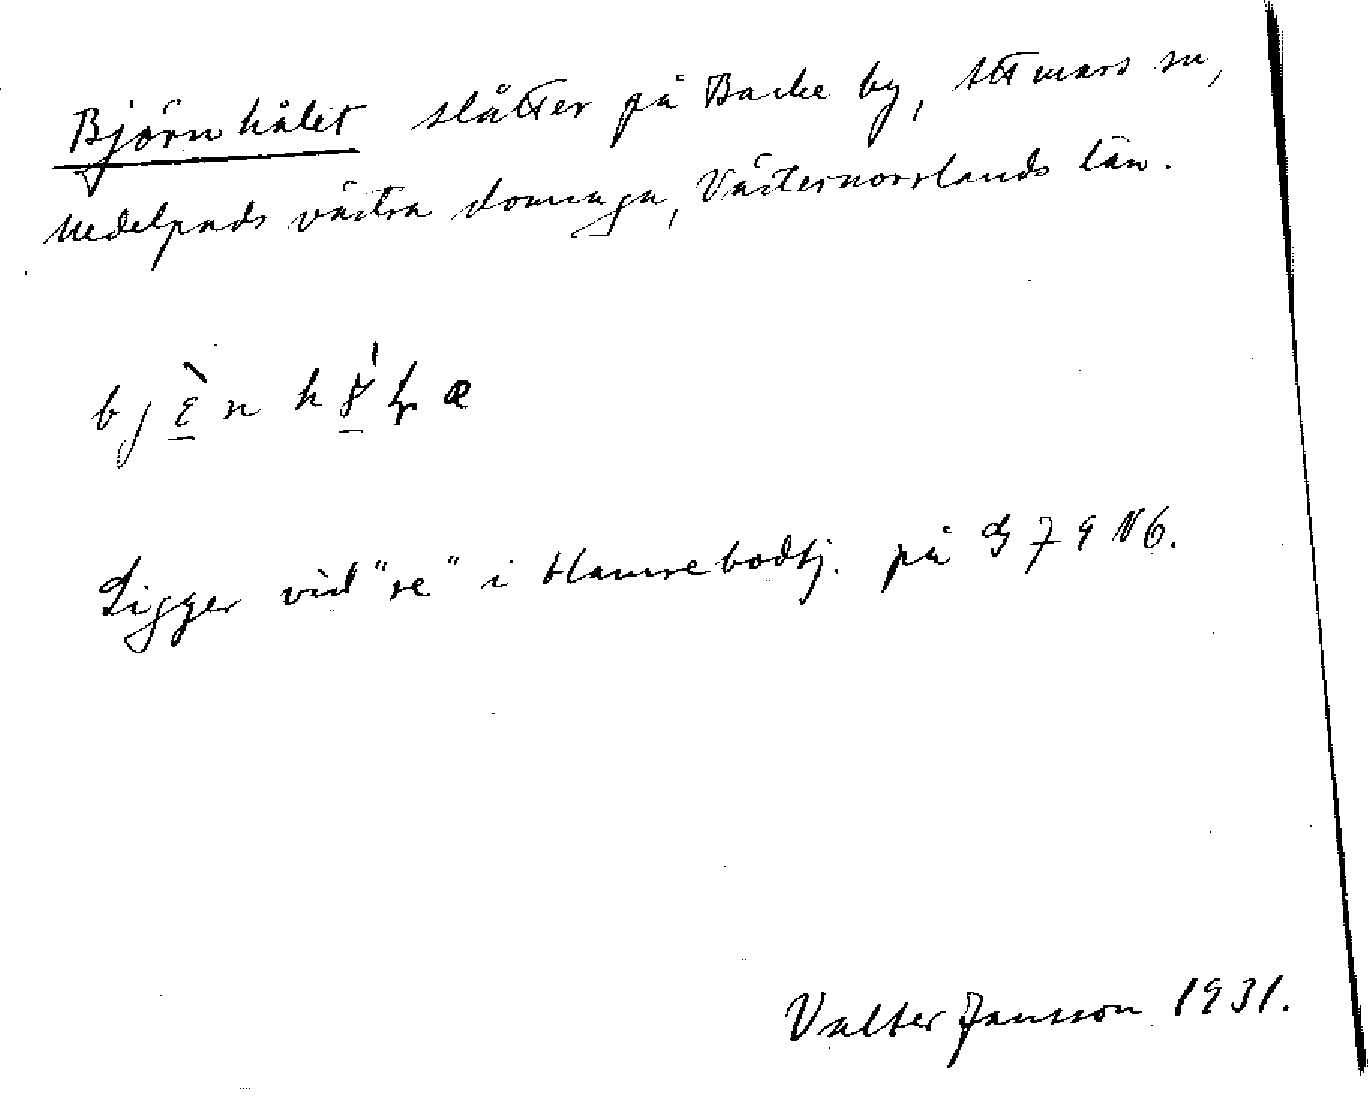 Björnhålet slåtter på Backe by, Attmars sn,
Medelpads västra domsaga, Västernorrlands län.
Ligger vid "re" i Hamrebodtj. på G 7 9 N6.
Valter Jansson 1931.